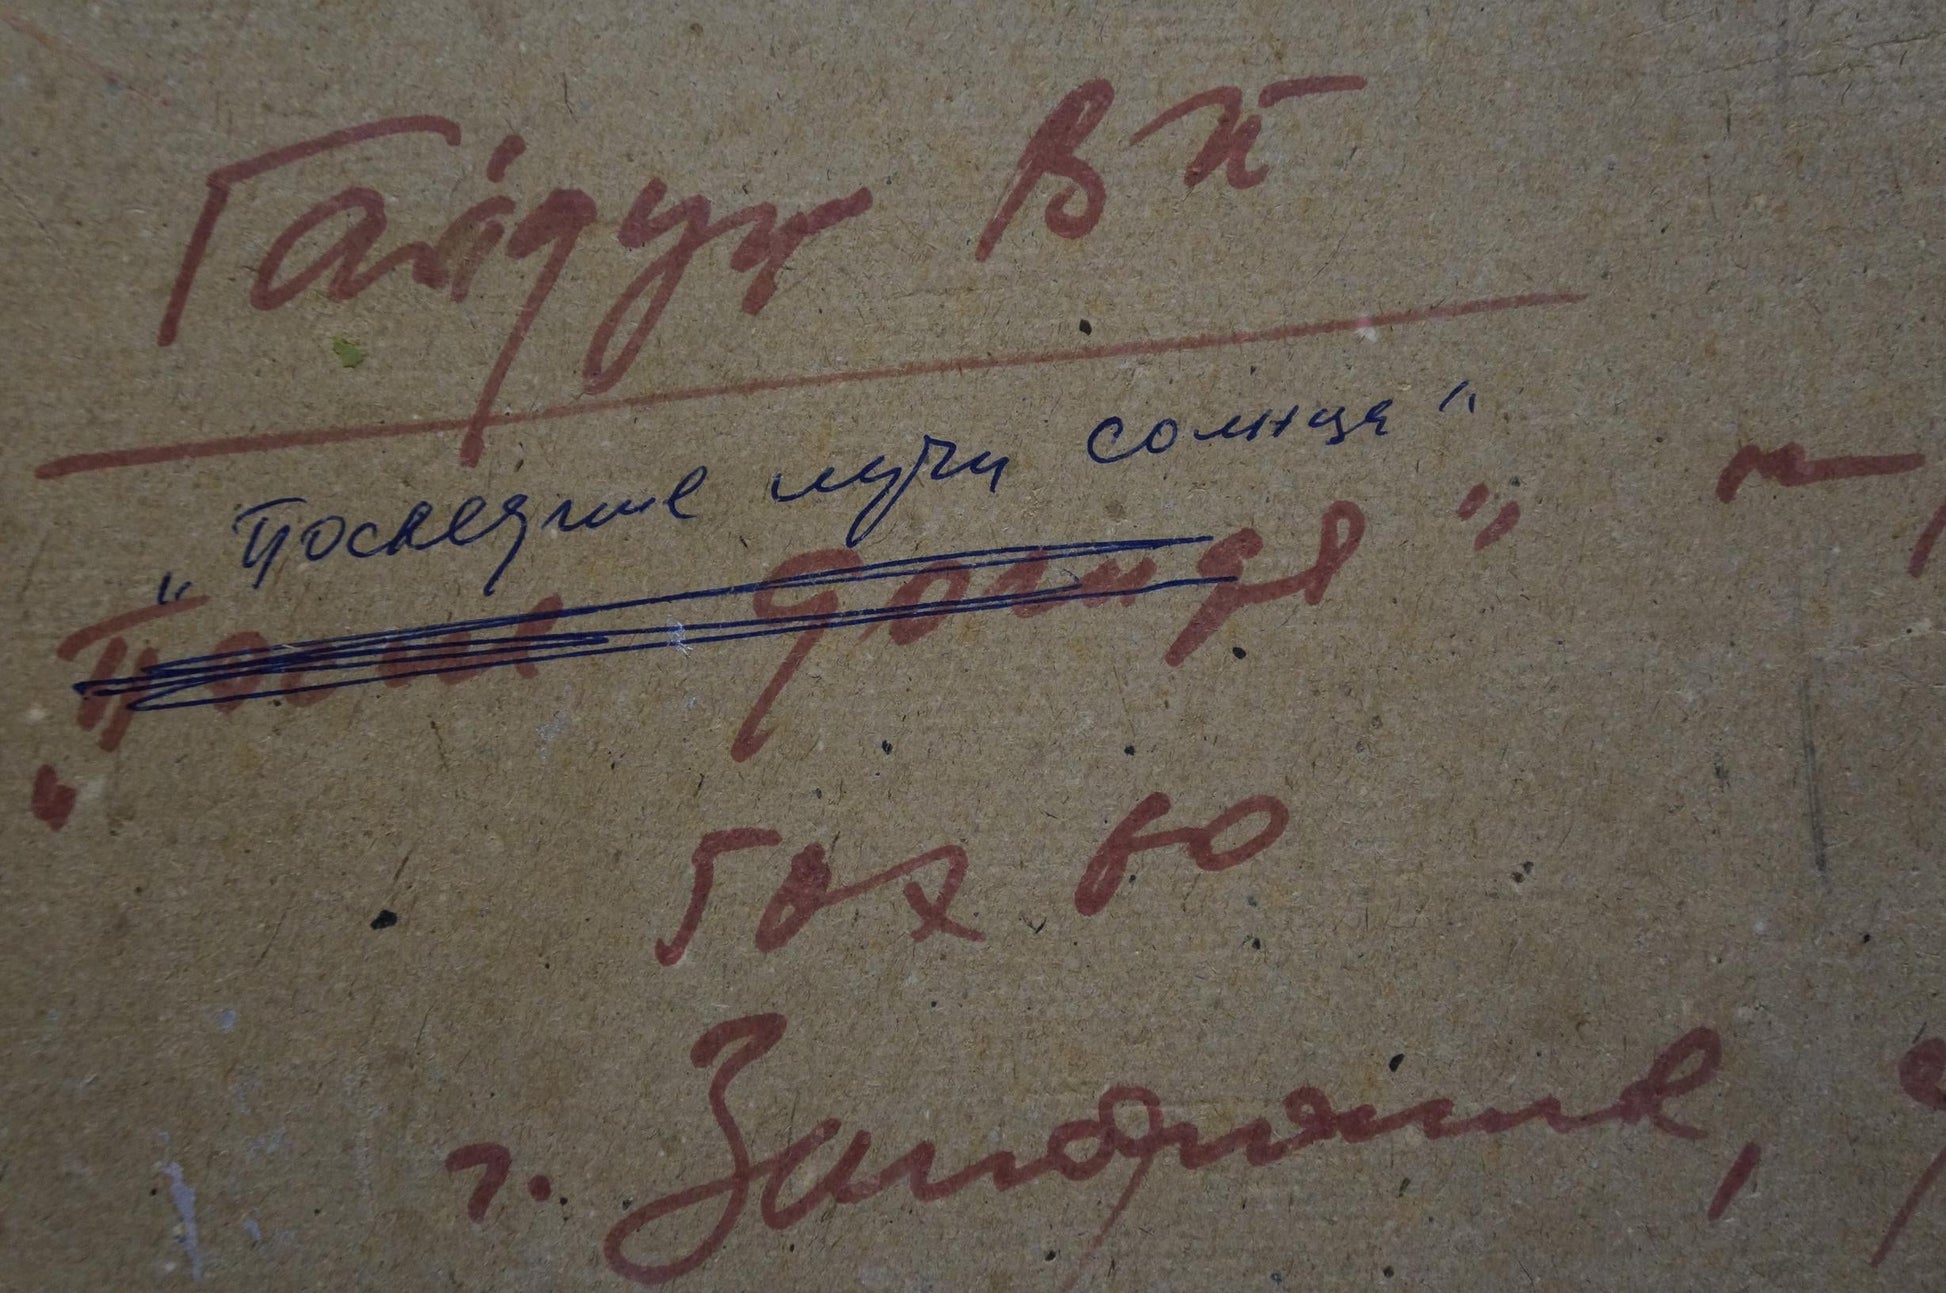 Гайдук В П
„Последние лучи солнца"
„После дождя"
50 х 60
г. Запорожье,